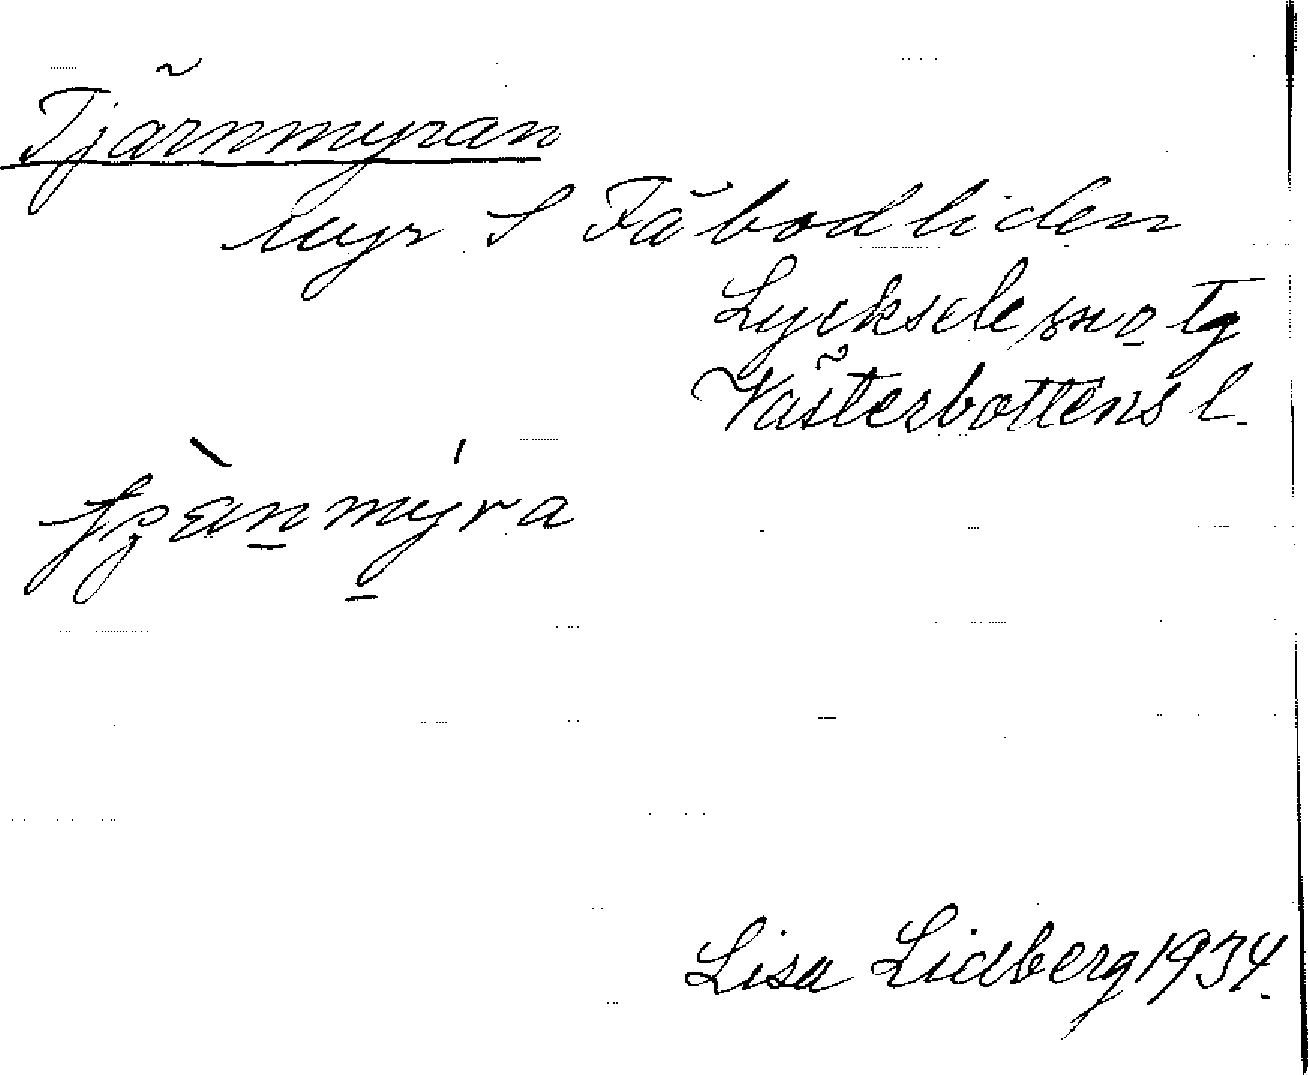 Tjärnmyran
Myr S Fäbodliden
Lycksele sn o tg
Västerbottens l.
mýra
Lisa Lidberg 1934.